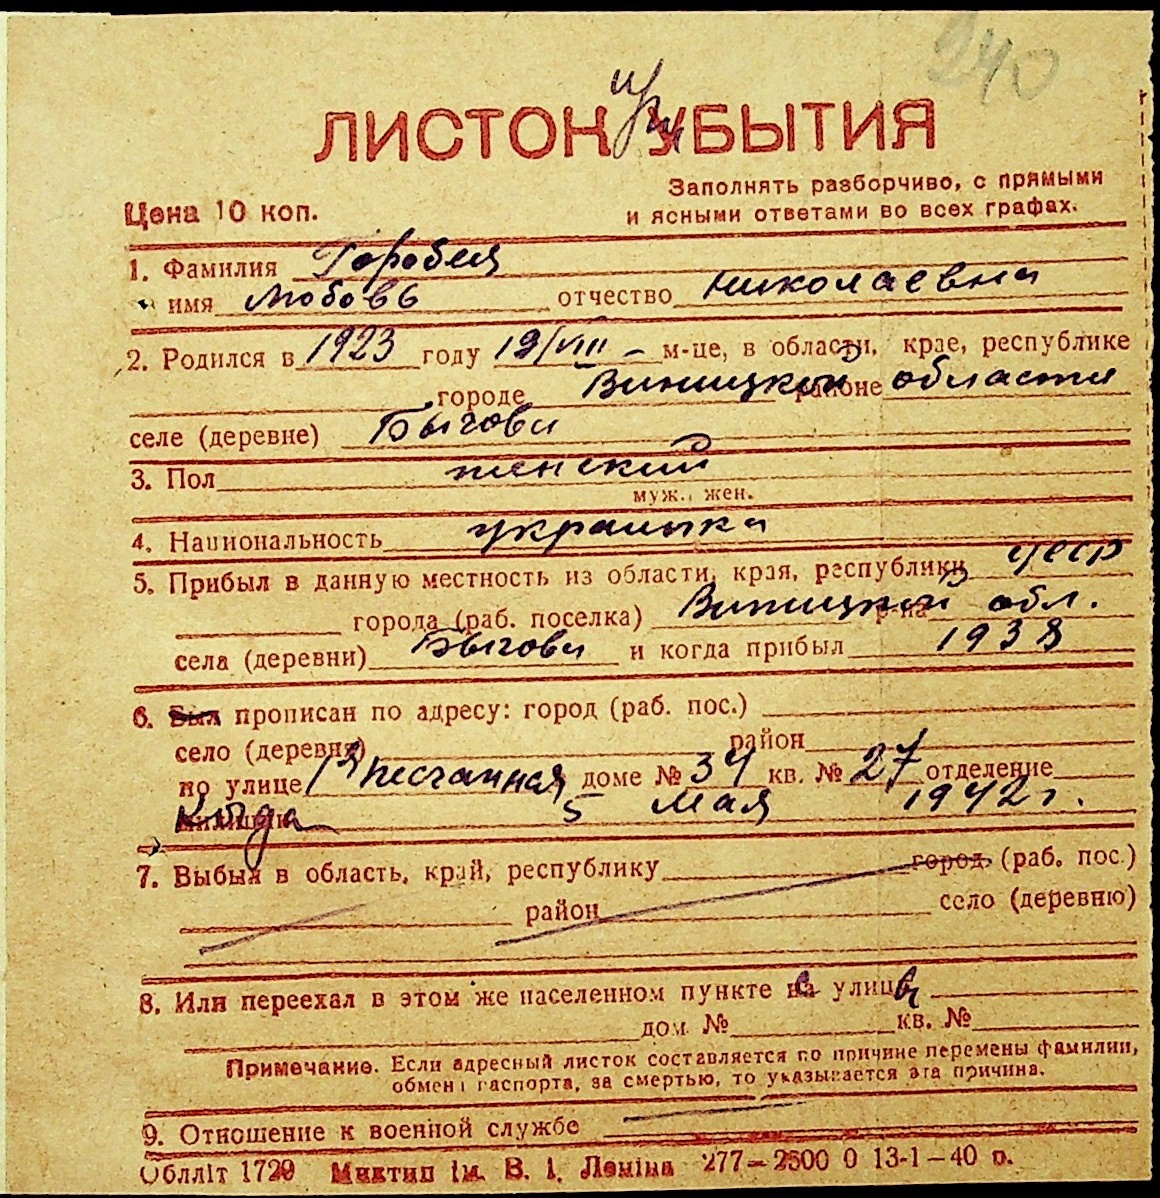 240
ЛИСТОК при УБЫТИЯ
Заполнять разборчиво, с прямыми
и ясными ответами во всех графах.
Цена 10 коп.
1. Фамилия Горобец
" имя Любовь отчество Николаевна
2. Родился в 1923 году 19/VIII – м-це, в области, крае, республике
городе Виницкой районе области
селе (деревне) Бычови
3. Пол женский
муж., жен.
4. Национальность украинка
5. Прибыл в данную местность из области, края, республики УССР
города (раб. поселка) Виницкой р-на обл.
села (деревни) Бычови и когда прибыл 1938
6. Был прописан по адресу: город (раб. пос.)
село (деревня) район
по улице 1я песчанная доме № 34 кв. № 27 отделение
милиции 5 мая 1942 г.
7. Выбыл в область, край, республику город (раб. пос.)
район село (деревню)
8. Или переехал в этом же населенном пункте с улицы
дом № кв. №
Примечание. Если адресный листок составляется по причине перемены фамилии,
обмена паспорта, за смертью, то указывается эта причина.
9. Отношение к военной службе
Облліт 1729 Миктип ім. В. І. Леніна 277–2500 0 13-1–40 р.